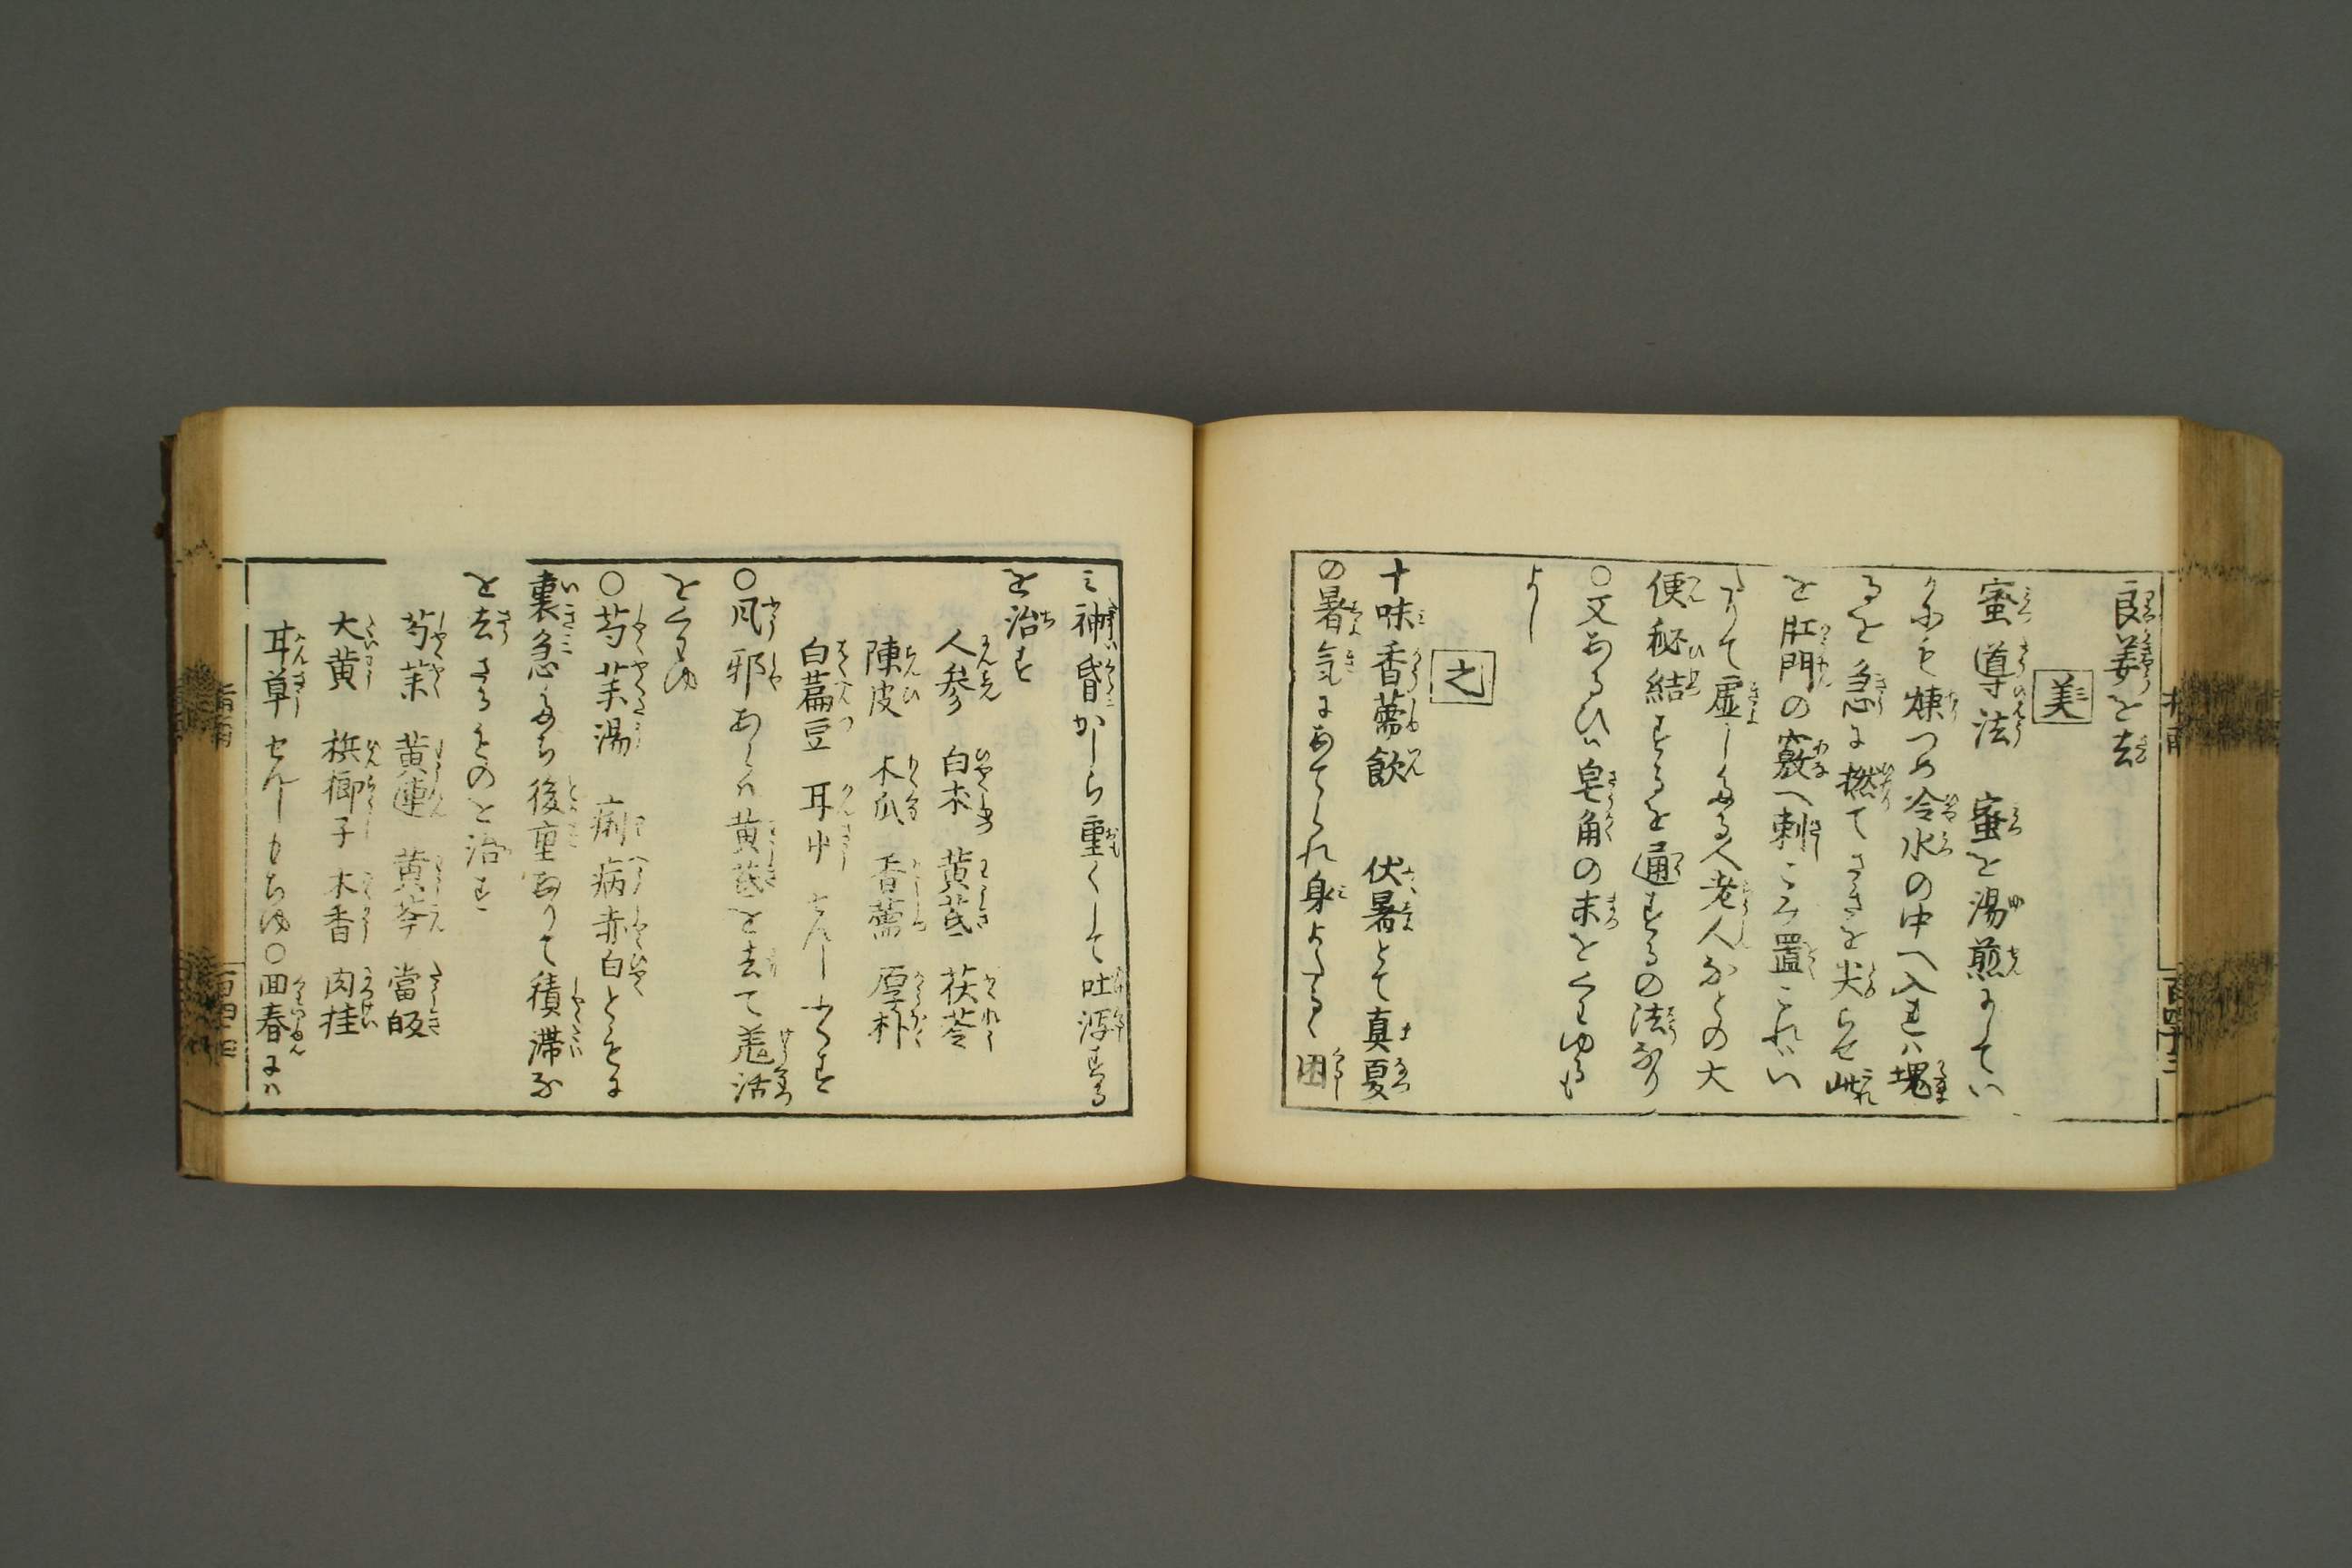 良姜を去
美
蜜導法　蜜を湯煎にしてい
かにも煉つめ冷水の中へ入れハ塊
るを急に撚てさきを尖らせ此
を肛門の竅へ刺こみ置これハい
たりて虚したる人老人などの大
便秘結するを通するの法なり
○又あるひハ皂角の末をくわゆるも
よし
之
十味香薷飲　伏暑とて真夏
の暑気にあてられ身よだるく困
ミ神昏かしら重くして吐瀉する
を治す
人参　白朮　黄芪　茯苓
陳皮　木瓜　香薷　厚朴
白萹豆　耳中　せんじふくす
○風邪あらハ黄芪を去て羗活
をくわゆ
○芍薬湯　痢病赤白ともに
裏急たち後重ありて積滞な
を去さるものを治す
芍薬　黄連　黄芩　當皈
大黄　梹榔子　木香　肉桂
耳草　せんじもちゆ○回春にハ